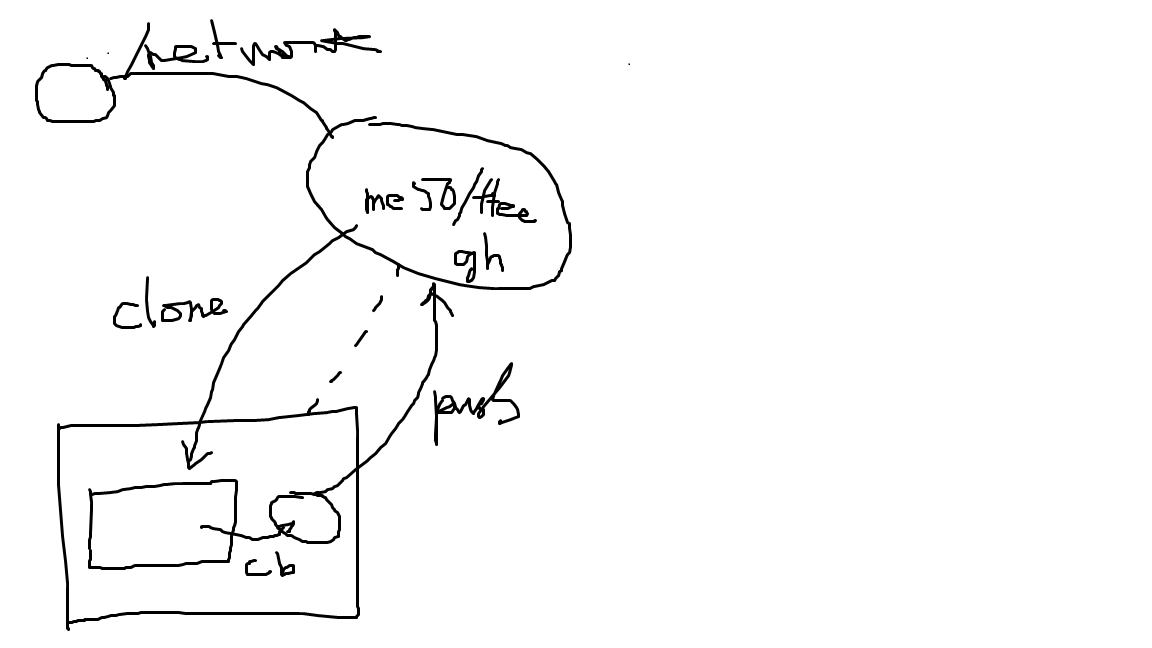 /network
me50/ttee
gh
clone
push
cb